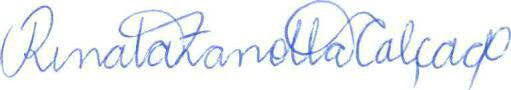 Renata Zanotta Calçado